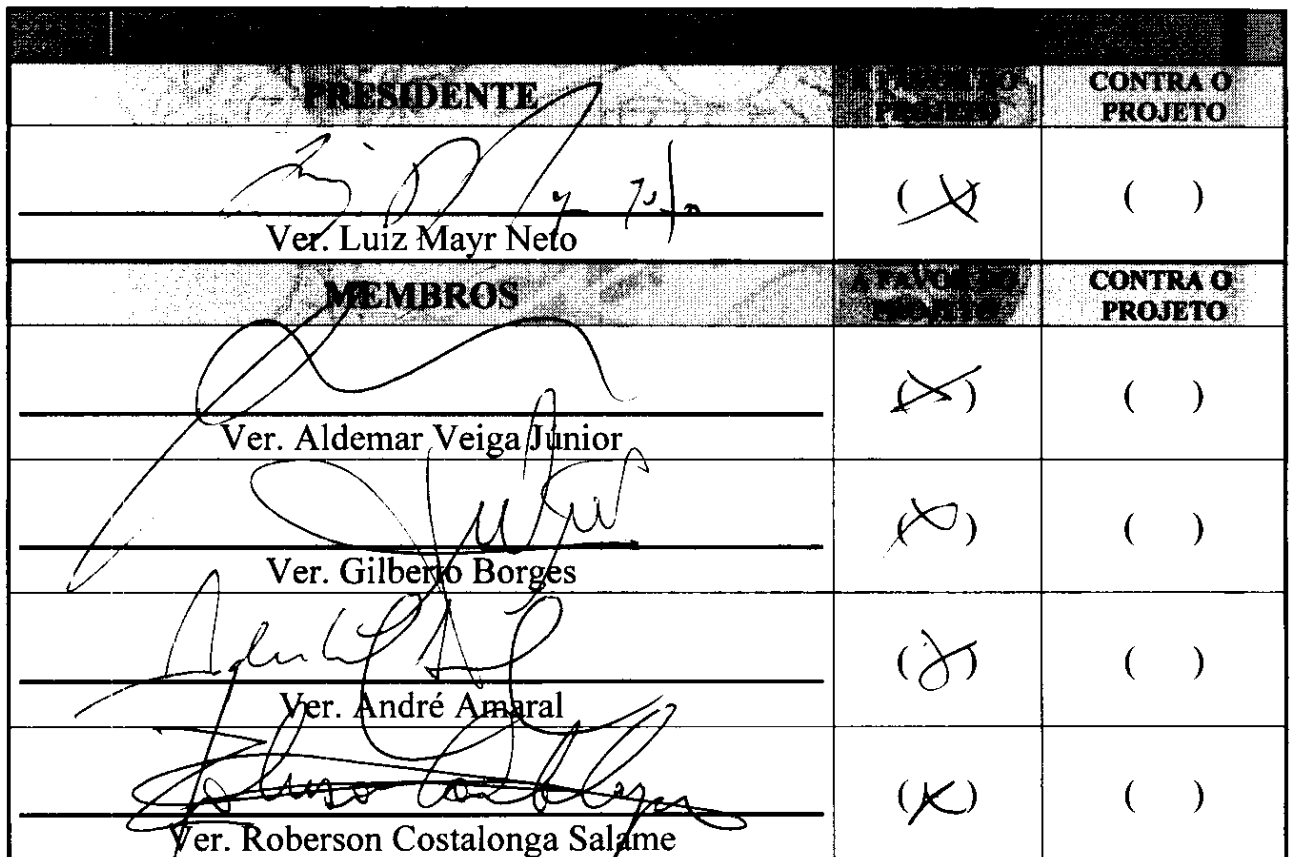 PRESIDENTE
A FAVOR DO PROJETO
CONTRA O PROJETO
Ver. Luiz Mayr Neto
(X)
( )
MEMBROS
A FAVOR DO PROJETO
CONTRA O PROJETO
Ver. Aldemar Veiga Junior
(X)
( )
Ver. Gilberto Borges
(X)
( )
Ver. André Amaral
(X)
( )
Ver. Roberson Costalonga Salame
(X)
( )